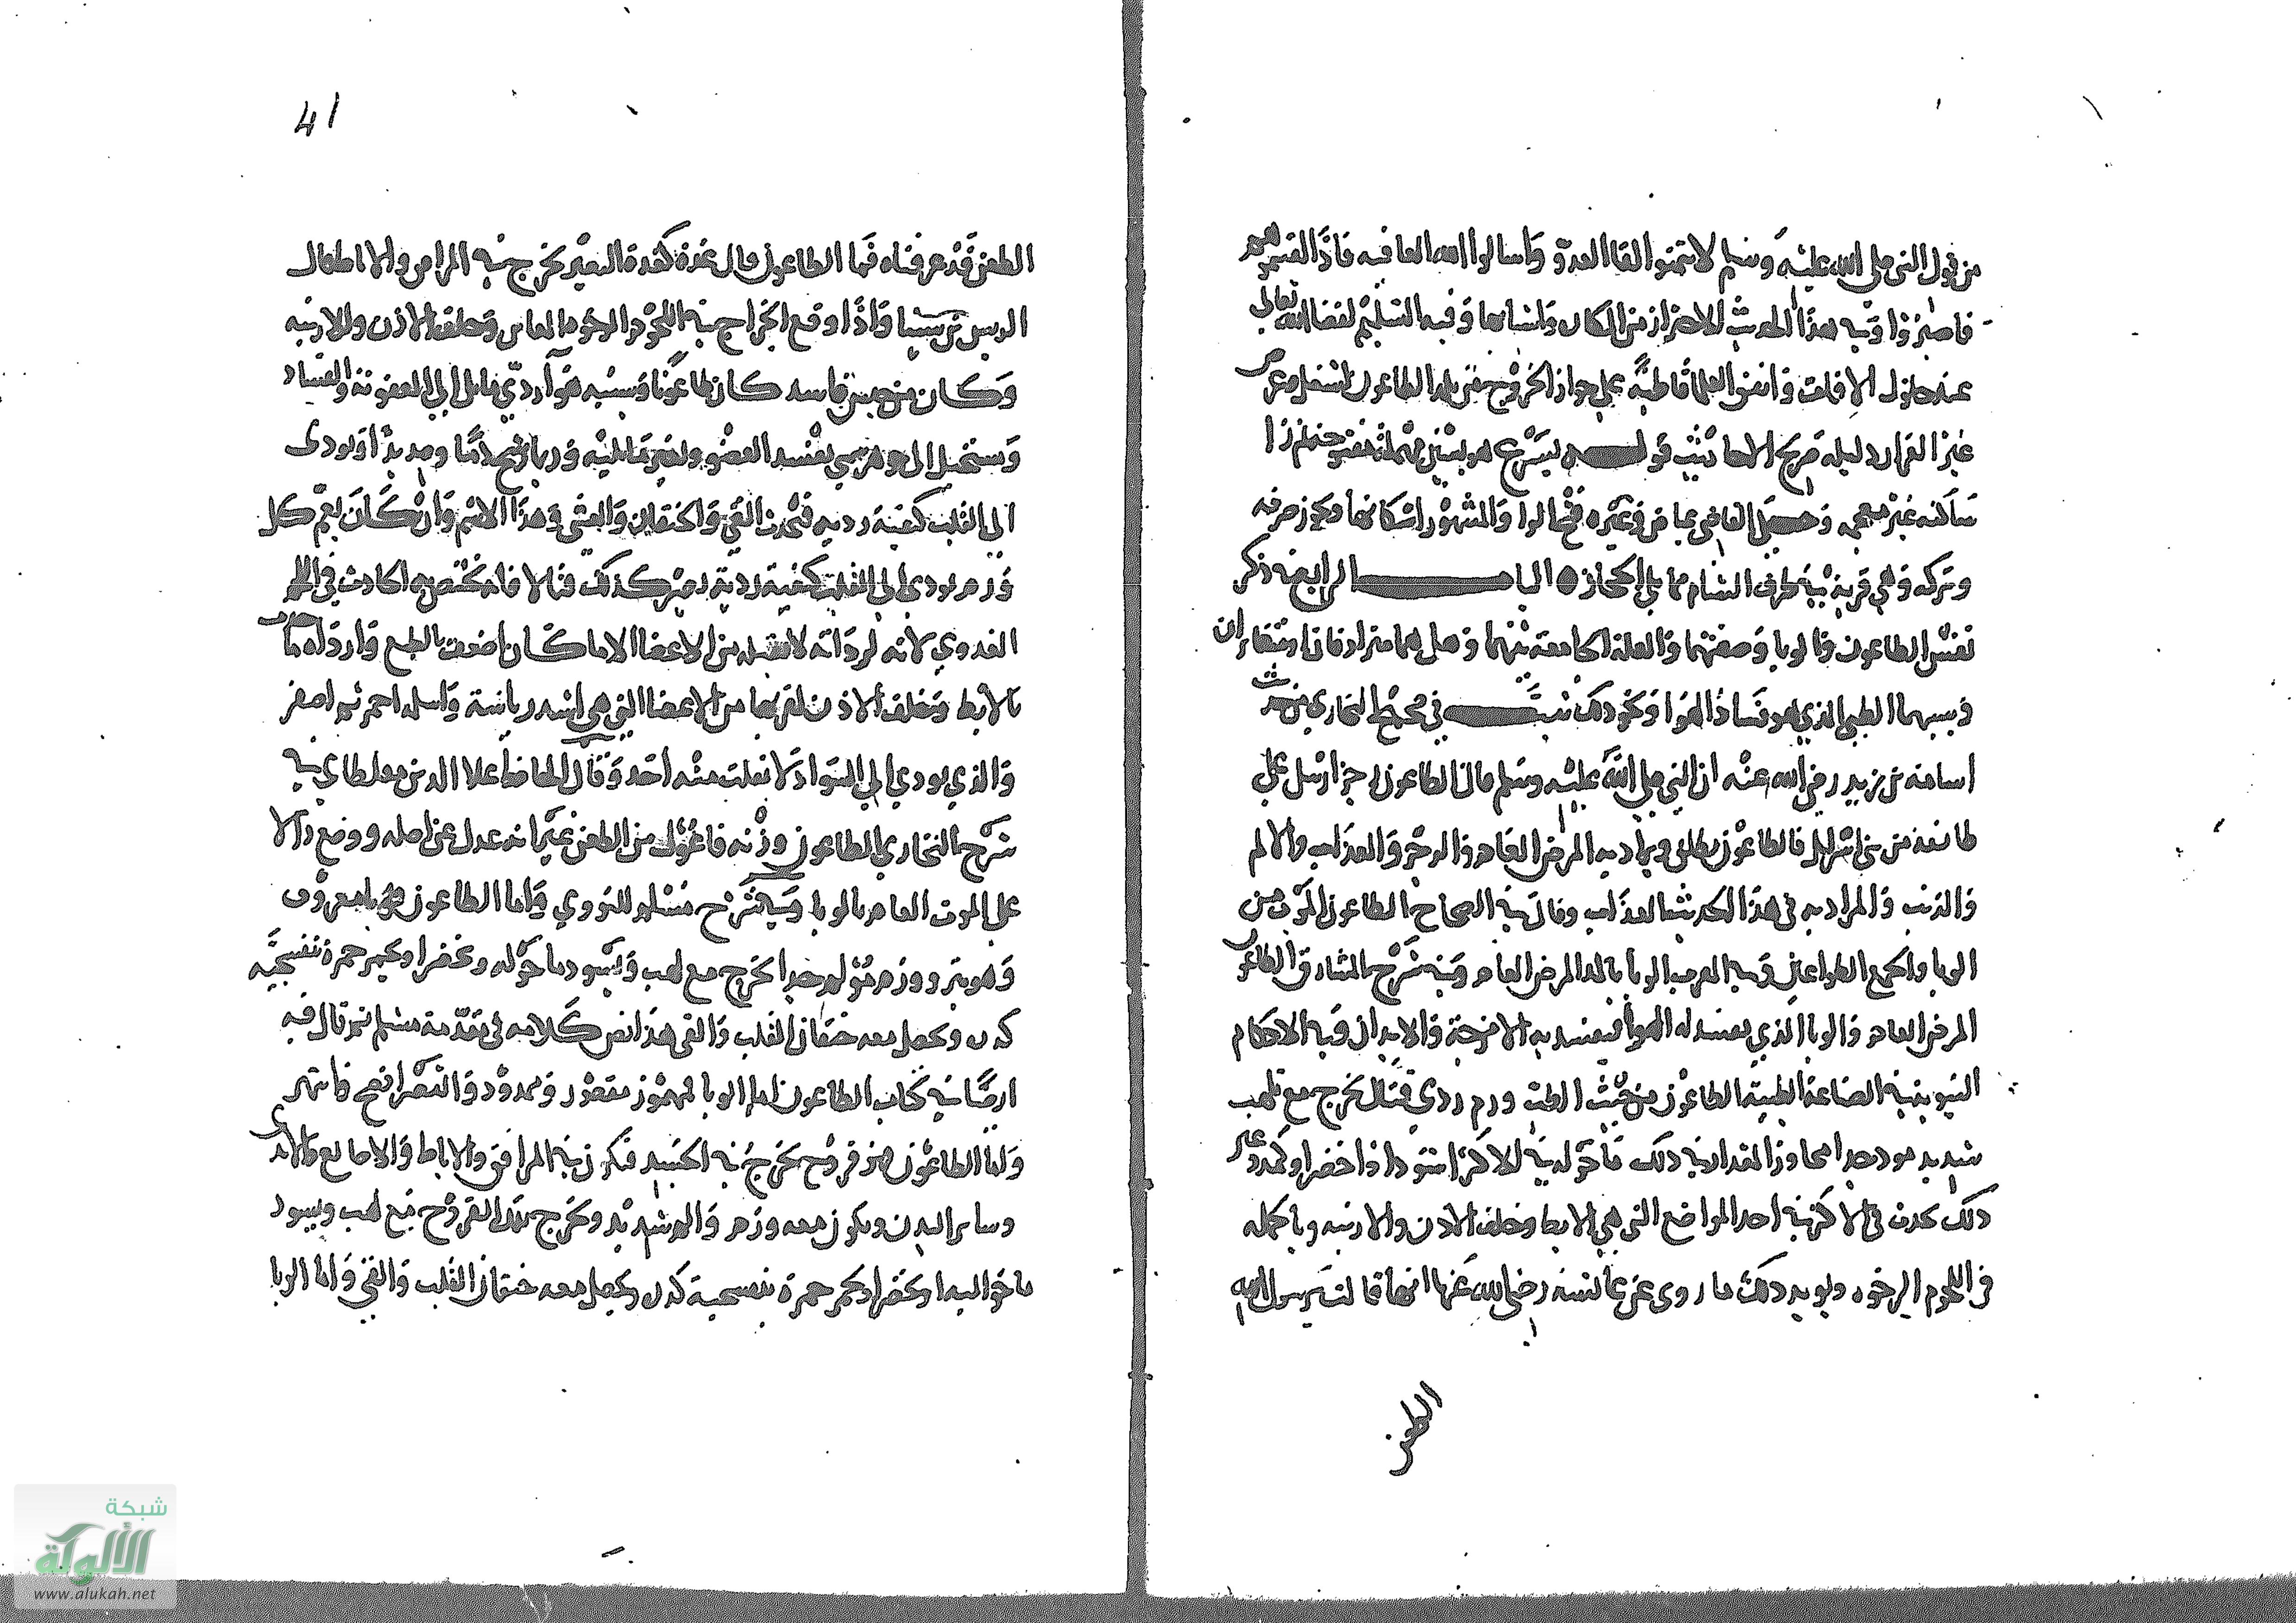 من قول النبي صلى الله عليه وسلم لا تتمنوا لقا العدو واسالوا الله العافيه فاذا لقيتموهم
فاصبروا وفيه هذا الحديث الاحتراز من المكاره واسبابها وفيه التسليم لقضا الله تعالى
عند حلول الافات واتفق العلما قاطبة على جواز الخروج من بلد الطاعون لشغل وغرض
غير الفرار ودليله صريح الاحاديث قوله بسرغ هو بسين مهمله مفتوحه ثم را
ساكنه غير معجمه وحكى القاضي عياض وغيره فتح الرا والمشهور اسكانها ويجوز صرفه
وتركه وهي قرية في طرف الشام مما يلي الحجاز الباب الرابع في ذكر
تفسير الطاعون والوبا وصفتهما والعلة الجامعة بينهما وهل هما مترادفان او متغايران
وسببهما الطبي الذي هو فساد الهوا ونحو ذلك ثبت في صحيح البخاري من حديث
اسامة بن زيد رضي الله عنه ان النبي صلى الله عليه وسلم قال الطاعون رجز ارسل على
طائفة من بني اسرائيل فالطاعون يطلق ويراد به المرض العام والرجز والعذاب والالم
والذنب والمراد به في هذا الحديث العذاب وقال في الصحاح الطاعون الموت من
الوبا والجمع الطواعين وفي المعرب الوبا بالمد المرض العام وفي شرح المشارق الطاعون
المرض العام والوبا الذي يفسد له الهوا فيفسد به الامزجة والابدان وفي الاحكام
النبويه في الصناعة الطبية الطاعون من حيث الطب ورم ردي قتال يخرج مع تلهب
شديد موذ جدا مجاوز المقدار في ذلك ما حوله في الاكثر اسود او اخضر او كمد وغير
ذلك يحدث في الاكثر في احد المواضع التي هي الابط وخلف الاذن والارنبه وبالجمله
في اللحوم الرخوه ويويد ذلك ما روى عن عائشة رضي الله عنها انها قالت يرسول الله
الطعن
41
الطعن قد عرفناه فما الطاعون قال غدة كغدة البعير يخرج في المراق والاباط قال
الريس بن سينا واذا وقع الخراج في اللحوم الرخوه والمغابن وخلف الاذن والارنبه
وكان من جنس فاسد كان طاعونا وسببه هوا ردي مايل الى العفونة والفساد
ويستحيل الى جوهر سمي يفسد العضو ويغير ما يليه وربما رشح دما وصديدا ويودى
الى القلب كيفية رديه فتحدث القي والخفقان والغشى وهذا الاسم وان كان يعم كل
ورم يودى الى القلب كيفية ردية يصير كذلك قتالا فانه يختص به الحادث في اللحم
الغدوي لانه لرداته لا يقبله من الاعضا الا ما كان اضعف بالطبع واردوه ما حدث
بالابط وخلف الاذن لقربهما من الاعضا التي هي اشد رياسة واسلمه احمر ثم اصفر
والذي يودي الى السواد لا يفلت منه احد وقال الحافظ علا الدين مغلطاي في
شرح البخاري الطاعون وزنه فاعول من الطعن غير انه عدل عن اصله ووضع دالا
على الموت العام بالوبا وفي شرح مسلم للنووي واما الطاعون فوبا معروف
وهو بثر وورم مؤلم جدا يخرج مع لهب ويسود ما حوله ويخضر او يحمر حمرة بنفسجيه
كدرة ويحصل معه خفقان القلب والقى هذا نص كلامه في مقدمة مسلم ثم قال فيه
ايضا في كتاب الطاعون اما الوبا فمهموز مقصور وممدود والقصر افصح واشهر
واما الطاعون فهو قروح يخرج في الجسد فيكون في المرافق والاباط والاصابع والايدي
وساير البدن ويكون معه ورم والم شديد ويخرج تلك القروح مع لهب ويسود
ما حواليه او يخضر او يحمر حمرة بنفسجية كدرة ويحصل معه خفقان القلب والقي واما الوبا
شبكة
الألوكة
www.alukah.net